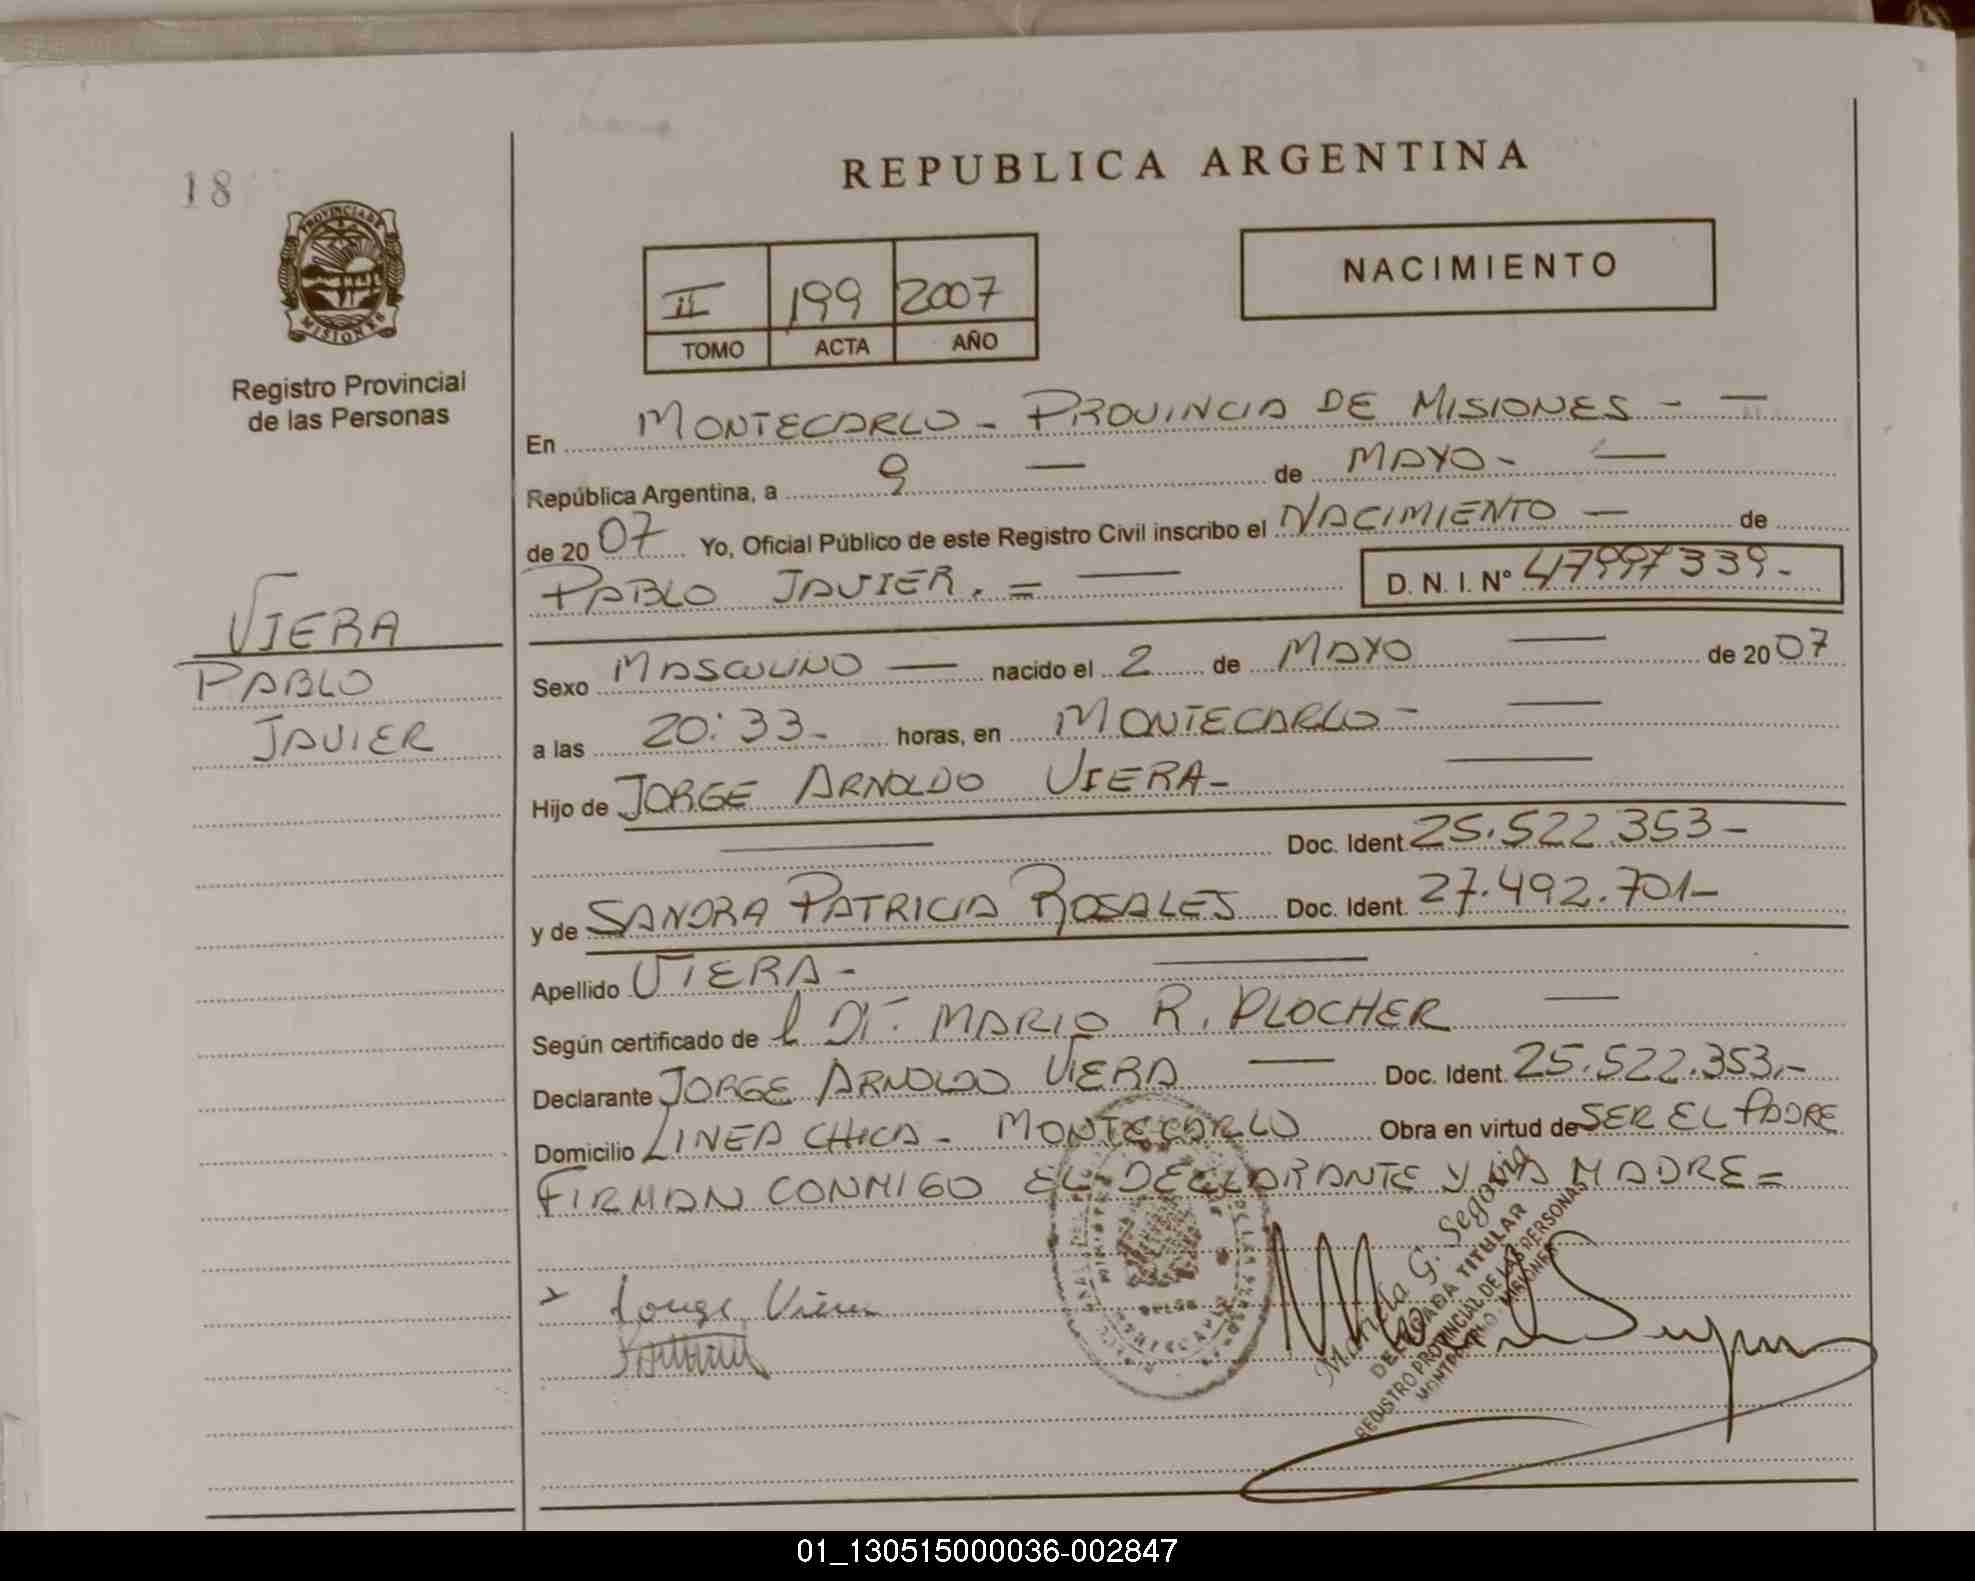 18
REPUBLICA ARGENTINA
PROVINCIA DE
MISIONES
Registro Provincial
de las Personas
II 199 2007
TOMO ACTA AÑO
NACIMIENTO
En MONTECARLO - PROVINCIA DE MISIONES - —
República Argentina, a 9 — de MAYO - —
de 2007 Yo, Oficial Público de este Registro Civil inscribo el NACIMIENTO — de
PABLO JAVIER. = — D. N. I. N° 47997339-
VIERA
PABLO
JAVIER
Sexo MASCULINO — nacido el 2 de MAYO — de 2007
a las 20:33- horas, en MONTECARLO - —
Hijo de JORGE ARNOLDO VIERA- —
— Doc. Ident. 25.522.353-
y de SANDRA PATRICIA ROSALES Doc. Ident. 27.492.701-
Apellido VIERA - —
Según certificado de l Dr. MARIO R. PLOCHER —
Declarante JORGE ARNOLDO VIERA — Doc. Ident. 25.522.353.-
Domicilio LINEA CHICA - MONTECARLO Obra en virtud de SER EL PADRE
FIRMAN CONMIGO EL DECLARANTE Y LA MADRE =
Jorge Viera
Mariela G. Segovia
DELEGADA TITULAR
REGISTRO PROVINCIAL DE LAS PERSONAS
MONTECARLO - MISIONES
01_130515000036-002847